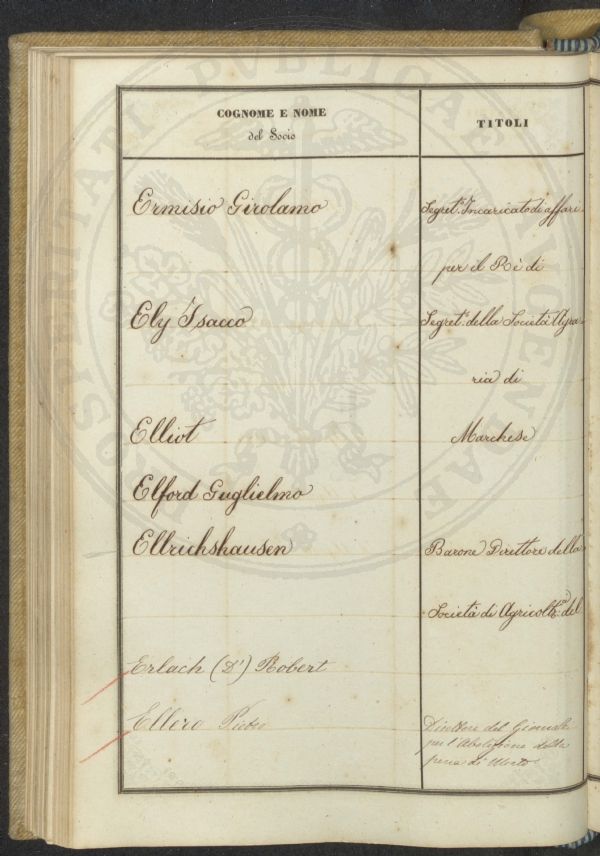 PROSPERITATI PVBLICAE AVGENDAE
COGNOME E NOME
del Socio
TITOLI
Ermisio Girolamo
Segret.º Incaricato di affari
per il Rè di
Ely Isacco
Segret.º della Società Agra-
ria di
Elliot
Marchese
Elford Guglielmo
Ellrichshausen
Barone Direttore della
Società di Agricolt.ra del
Erlach (D') Robert
Ellero Pietro
Direttore del Giornale
per l'Abolizione della
pena di Morte